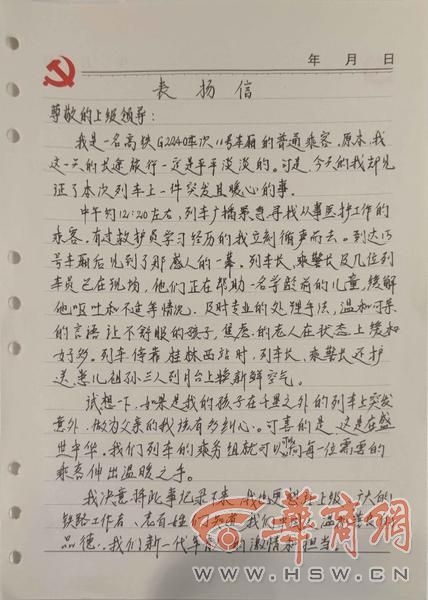 年 月 日
表扬信
尊敬的上级领导:
我是一名高铁G2240车次11号车厢的普通乘客,原本,我
这一天的长途旅行一定是平平淡淡的。可是,今天的我却见
证了本次列车上一件突发且暖心的事。
中午约12:20左右,列车广播紧急寻找从事医护工作的
乘客,有过救护员学习经历的我立刻循声而去。到达15
号车厢后见到了那感人的一幕。列车长、乘警长及几位列
车员已在现场,他们正在帮助一名学龄前的儿童,缓解
他呕吐和不适等情况,及时专业的处理手法,温和可亲
的言语让不舒服的孩子,焦虑的老人在状态上缓和
好多。列车停靠桂林西站时,列车长、乘警长还护
送患儿祖孙三人到月台上换新鲜空气。
试想一下,如果是我的孩子在千里之外的列车上突发
意外,做为父亲的我该有多纠心。可喜的是,这是在盛
世中华。我们列车的乘务组就可以为每一位需要的
乘客伸出温暖之手。
我决意将此事记录下来,我也更想让上级
铁路工作者、老百姓们知道,我们
品德,我们新一代年 的激情和担当!
华商网
WWW.HSW.CN